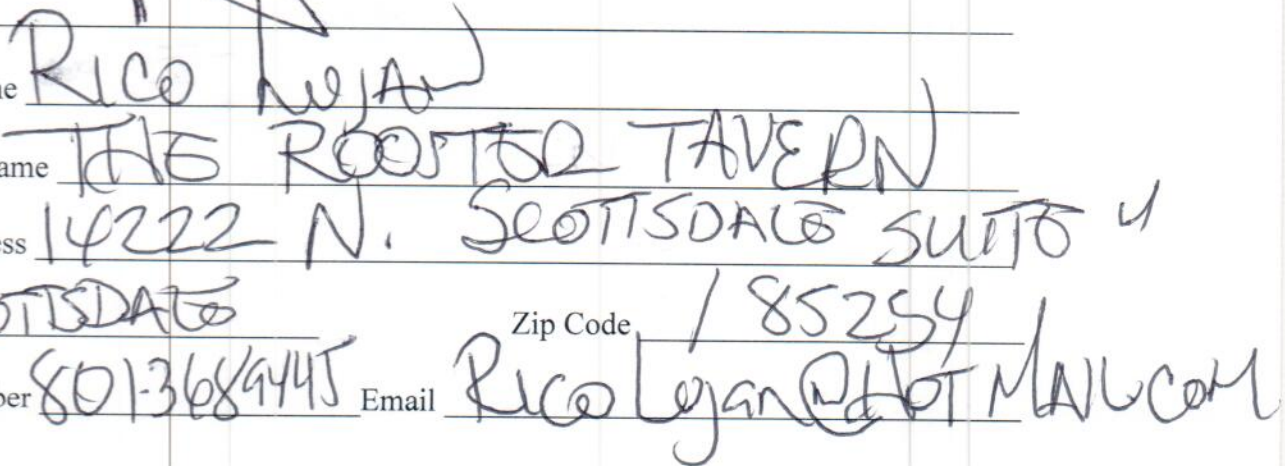 ne Rico Lujan
ame THE ROOSTER TAVERN
ess 14222 N. SCOTTSDALE SUITE
OTTSDALE Zip Code 85254
ber 801-3689445 Email Rico Lujan@HOTMAIL.COM